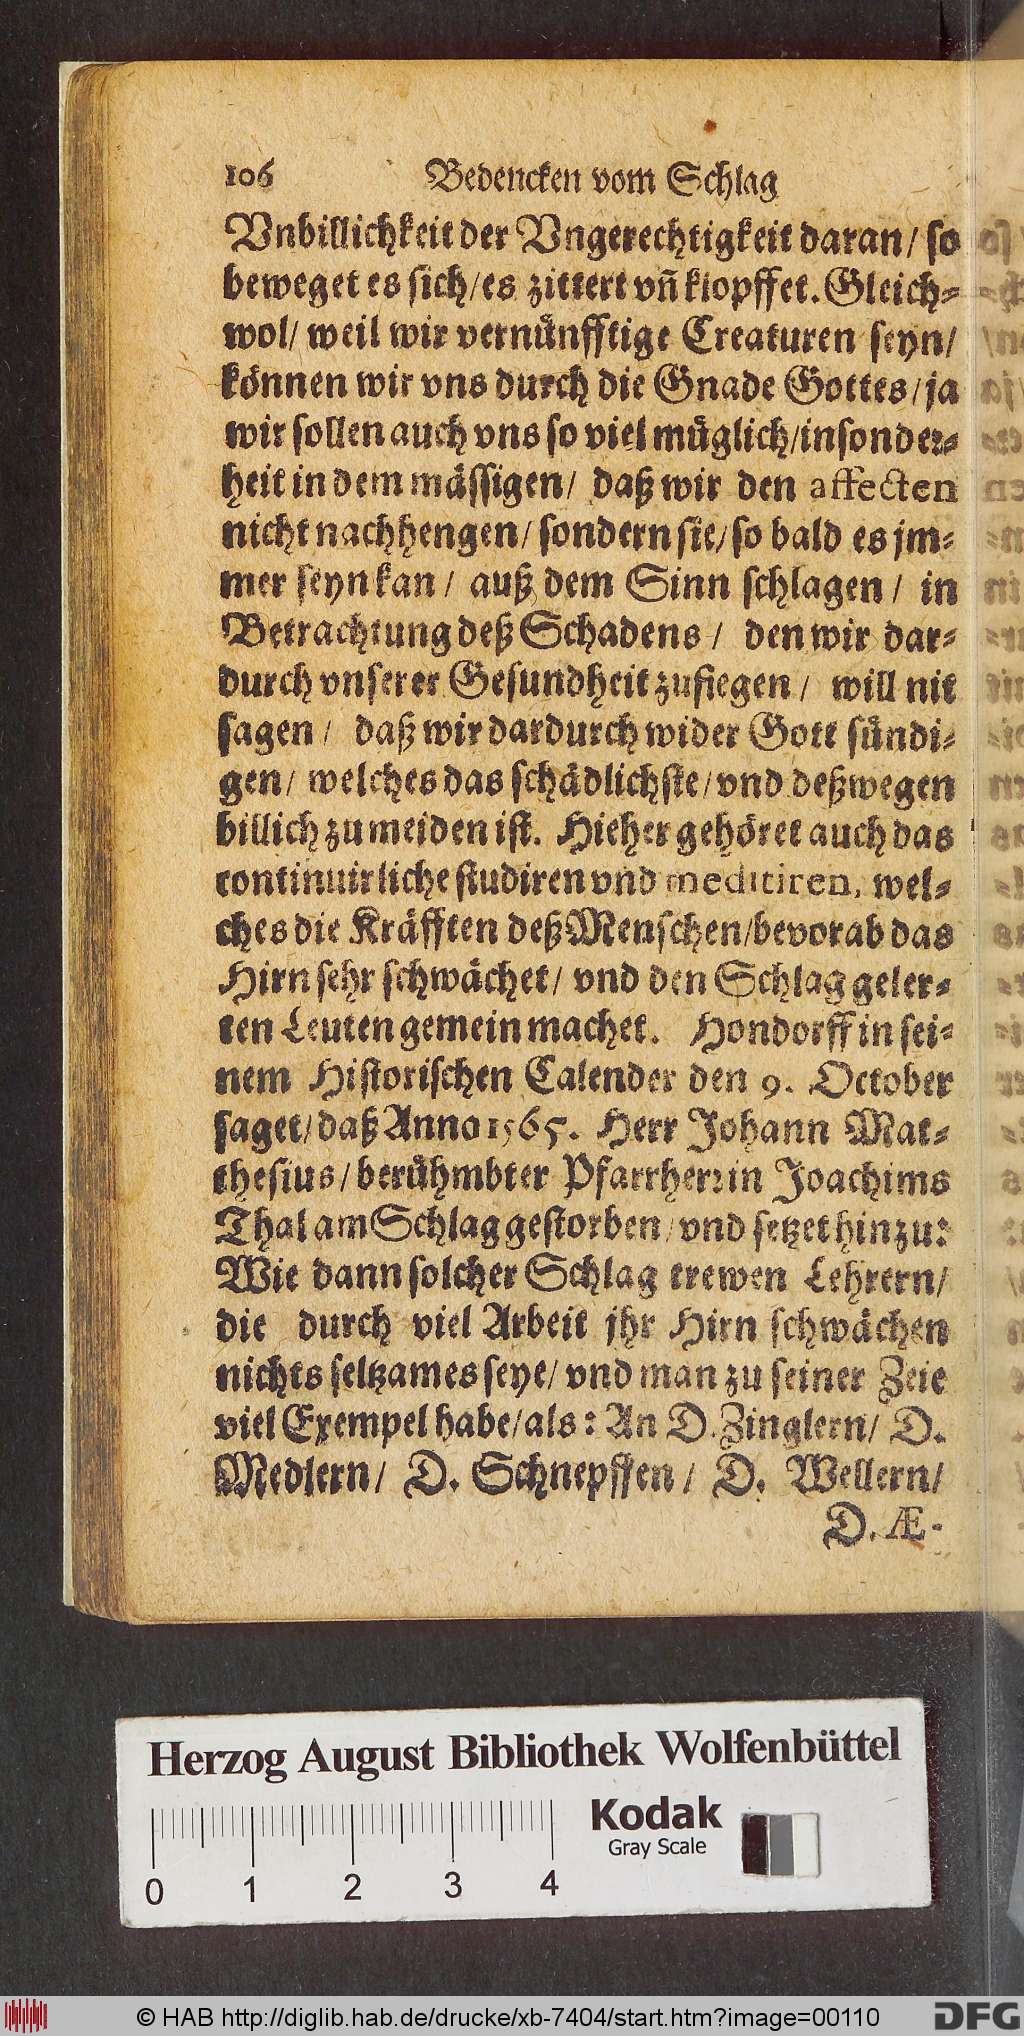 106 Bedencken vom Schlag
Vnbillichkeit der Vngerechtigkeit daran/ so
beweget es sich/ es zittert vñ klopffet. Gleich⸗
wol/ weil wir vernünfftige Creaturen seyn/
können wir vns durch die Gnade Gottes/ ja
wir sollen auch vns so viel müglich/ insonder⸗
heit in dem mässigen/ daß wir den affecten
nicht nachhengen/ sondern sie/ so bald es jm⸗
mer seyn kan/ auß dem Sinn schlagen/ in
Betrachtung deß Schadens/ den wir dar⸗
durch vnserer Gesundheit zufiegen/ will nit
sagen/ daß wir dardurch wider Gott sündi⸗
gen/ welches das schädlichste/ vnd deßwegen
billich zu meiden ist. Hieher gehöret auch das
continuirliche studiren vnd meditiren, wel⸗
ches die Kräfften deß Menschen/ bevorab das
Hirn sehr schwächet/ vnd den Schlag geler⸗
ten Leuten gemein machet. Hondorff in sei⸗
nem Historischen Calender den 9. October
saget/ daß Anno 1565. Herr Johann Mat⸗
thesius/ berühmbter Pfarrherr in Joachims
Thal am Schlag gestorben/ vnd setzet hinzu:
Wie dann solcher Schlag trewen Lehrern/
die durch viel Arbeit jhr Hirn schwächen
nichts seltzames seye/ vnd man zu seiner Zeit
viel Exempel habe/ als: An D. Zinglern/ D.
Medlern/ D. Schnepffen/ D. Wellern/
D. Æ-
Herzog August Bibliothek Wolfenbüttel
Kodak
Gray Scale
0 1 2 3 4
© HAB http://diglib.hab.de/drucke/xb-7404/start.htm?image=00110
DFG